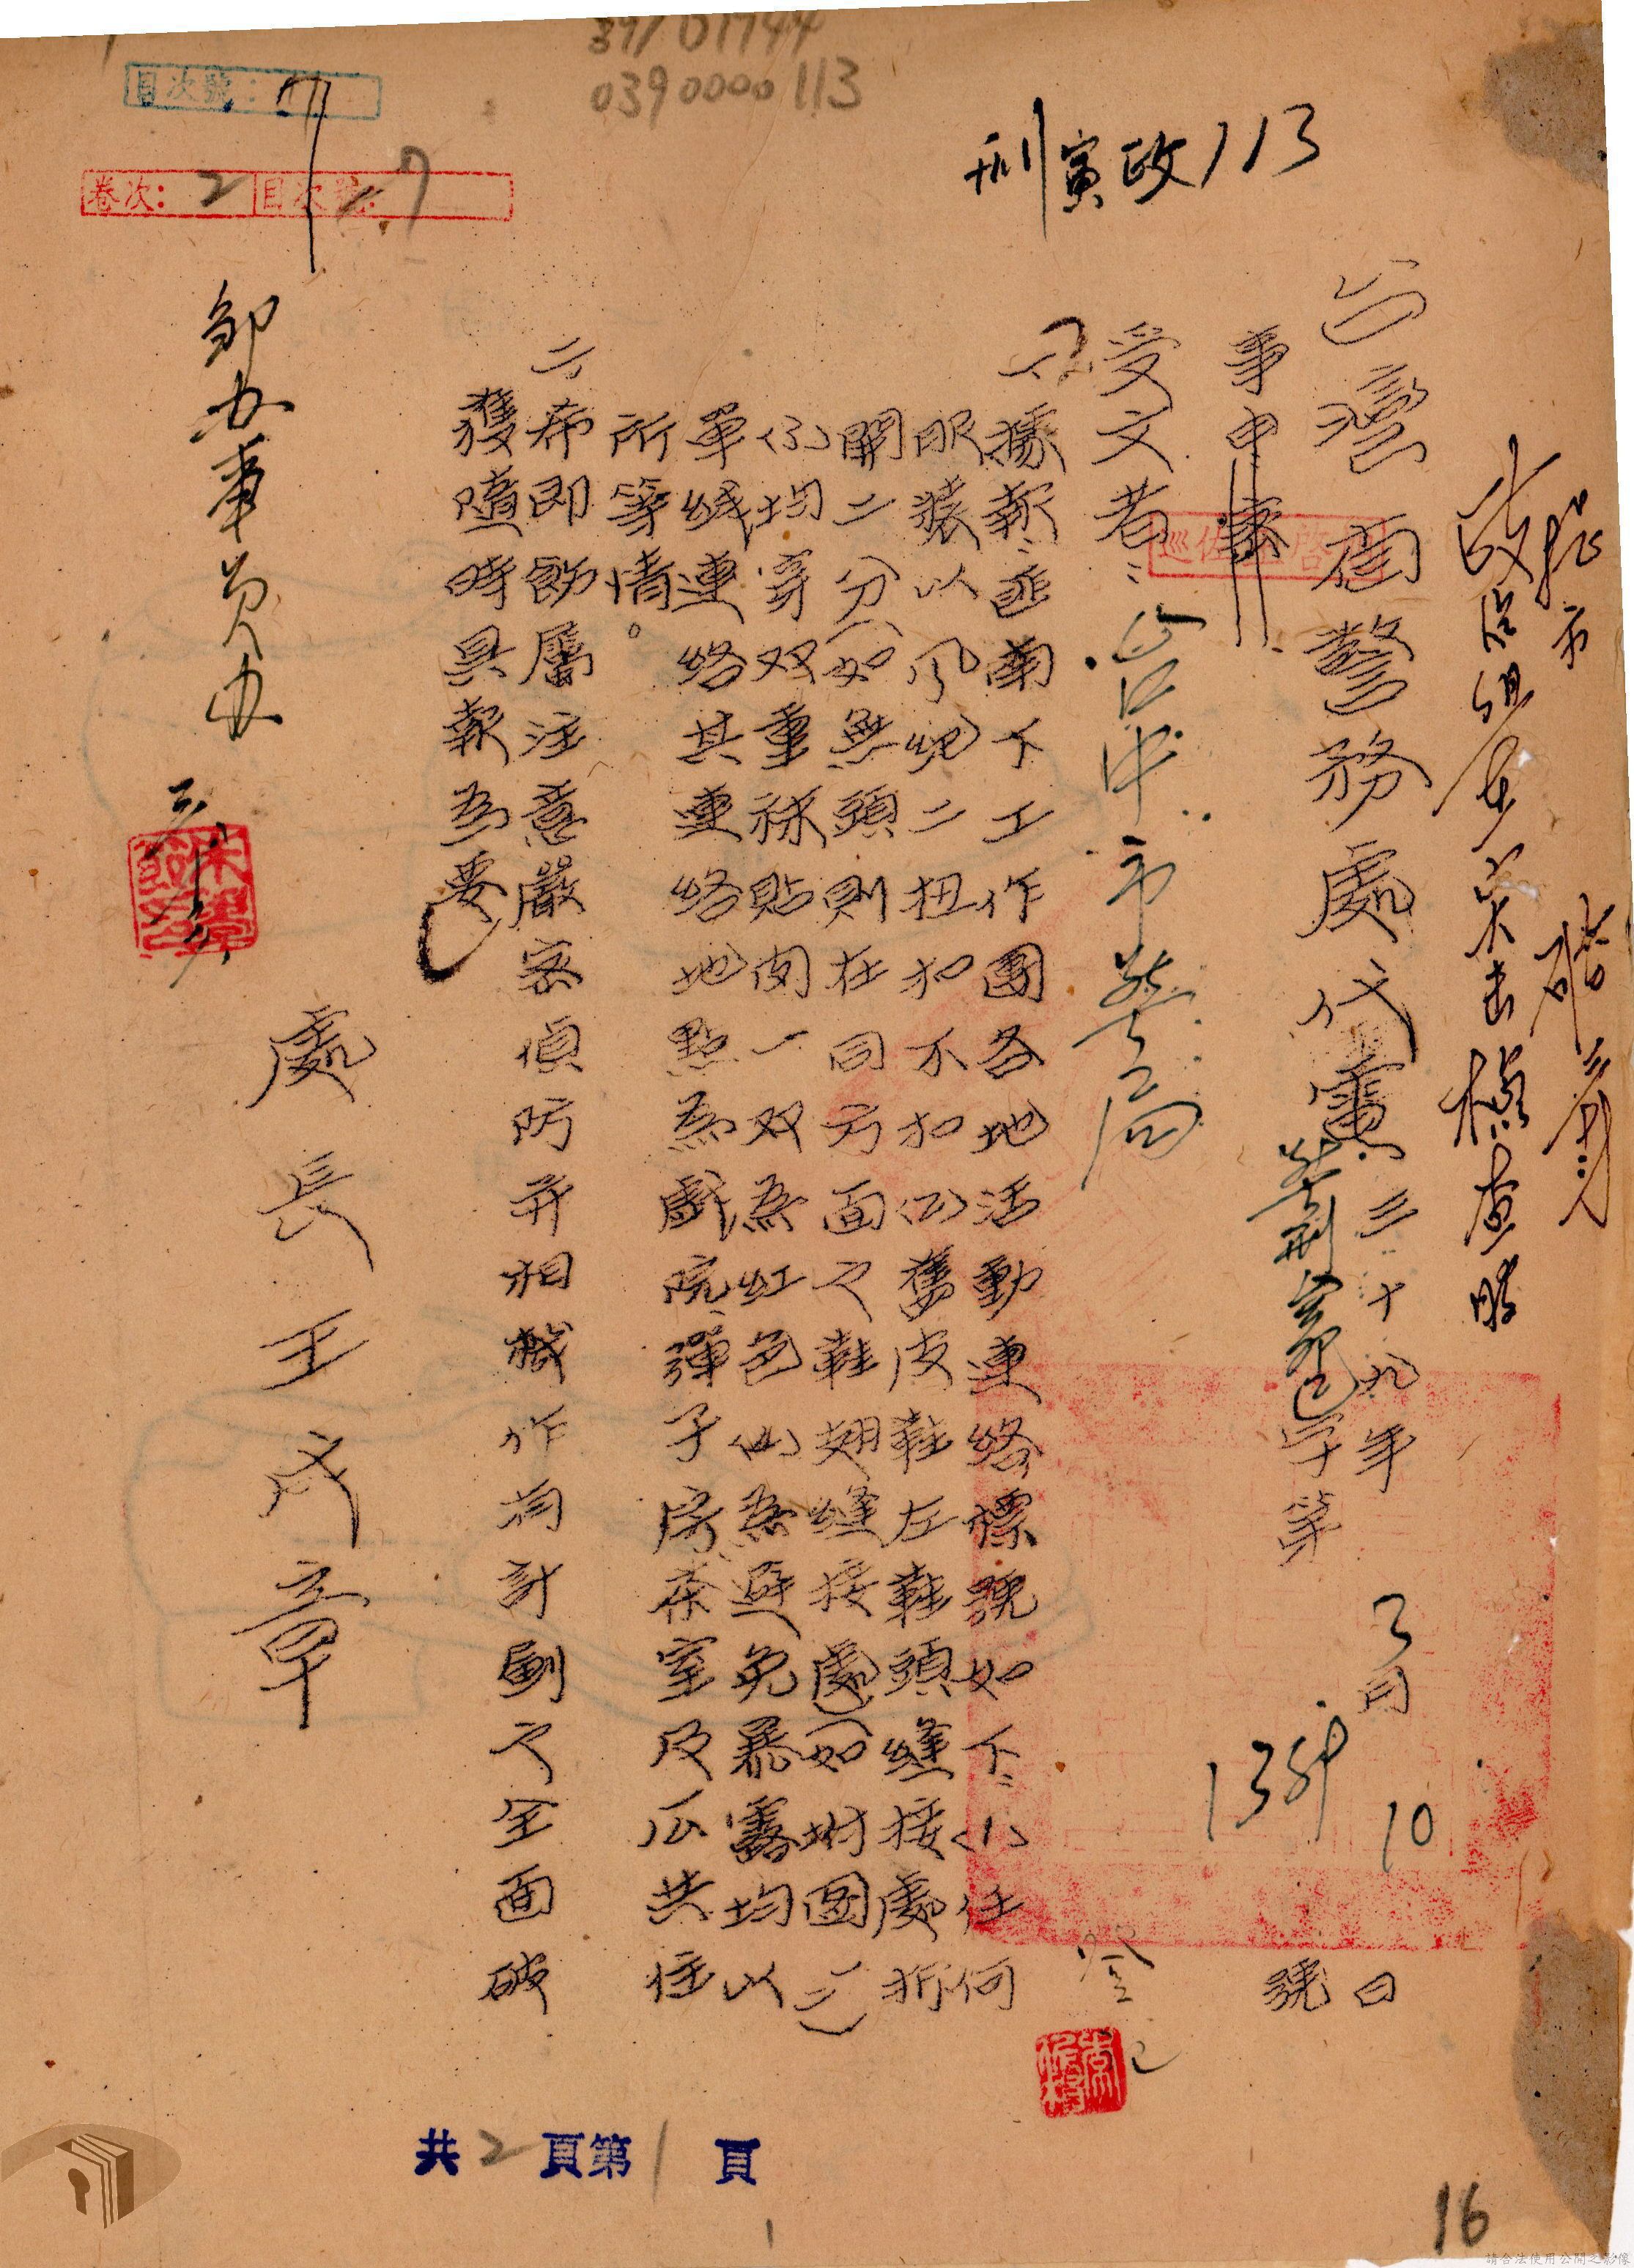 391 01744
0390000113
目次號:
卷次: 2 目次號: 7
刑寅政113
台灣省警務處代電 三十九年3月10日
警刑寅 字第1354號
事由
受文者:台中市警局
一、據報:匪南下工作團各地活動連絡標號如下:(1)任何
服裝以風紀二扭扣不扣(2)舊皮鞋左鞋頭縫接處折
開二分(如無頭則在同方面之鞋翅縫接處)(如附圖一二)
(3)均穿双重袜貼肉一双為紅色(4)為避免暴露均以
單线連絡其連絡地點為戲院、彈子房、茶室及公共住
所等情。
二、希即飭屬注意嚴密偵防并相機作有計劃之全面破
獲隨時具報為要
處長王成章
鄒办事員办
共2頁第1頁
1
16
請合法使用公開之影像